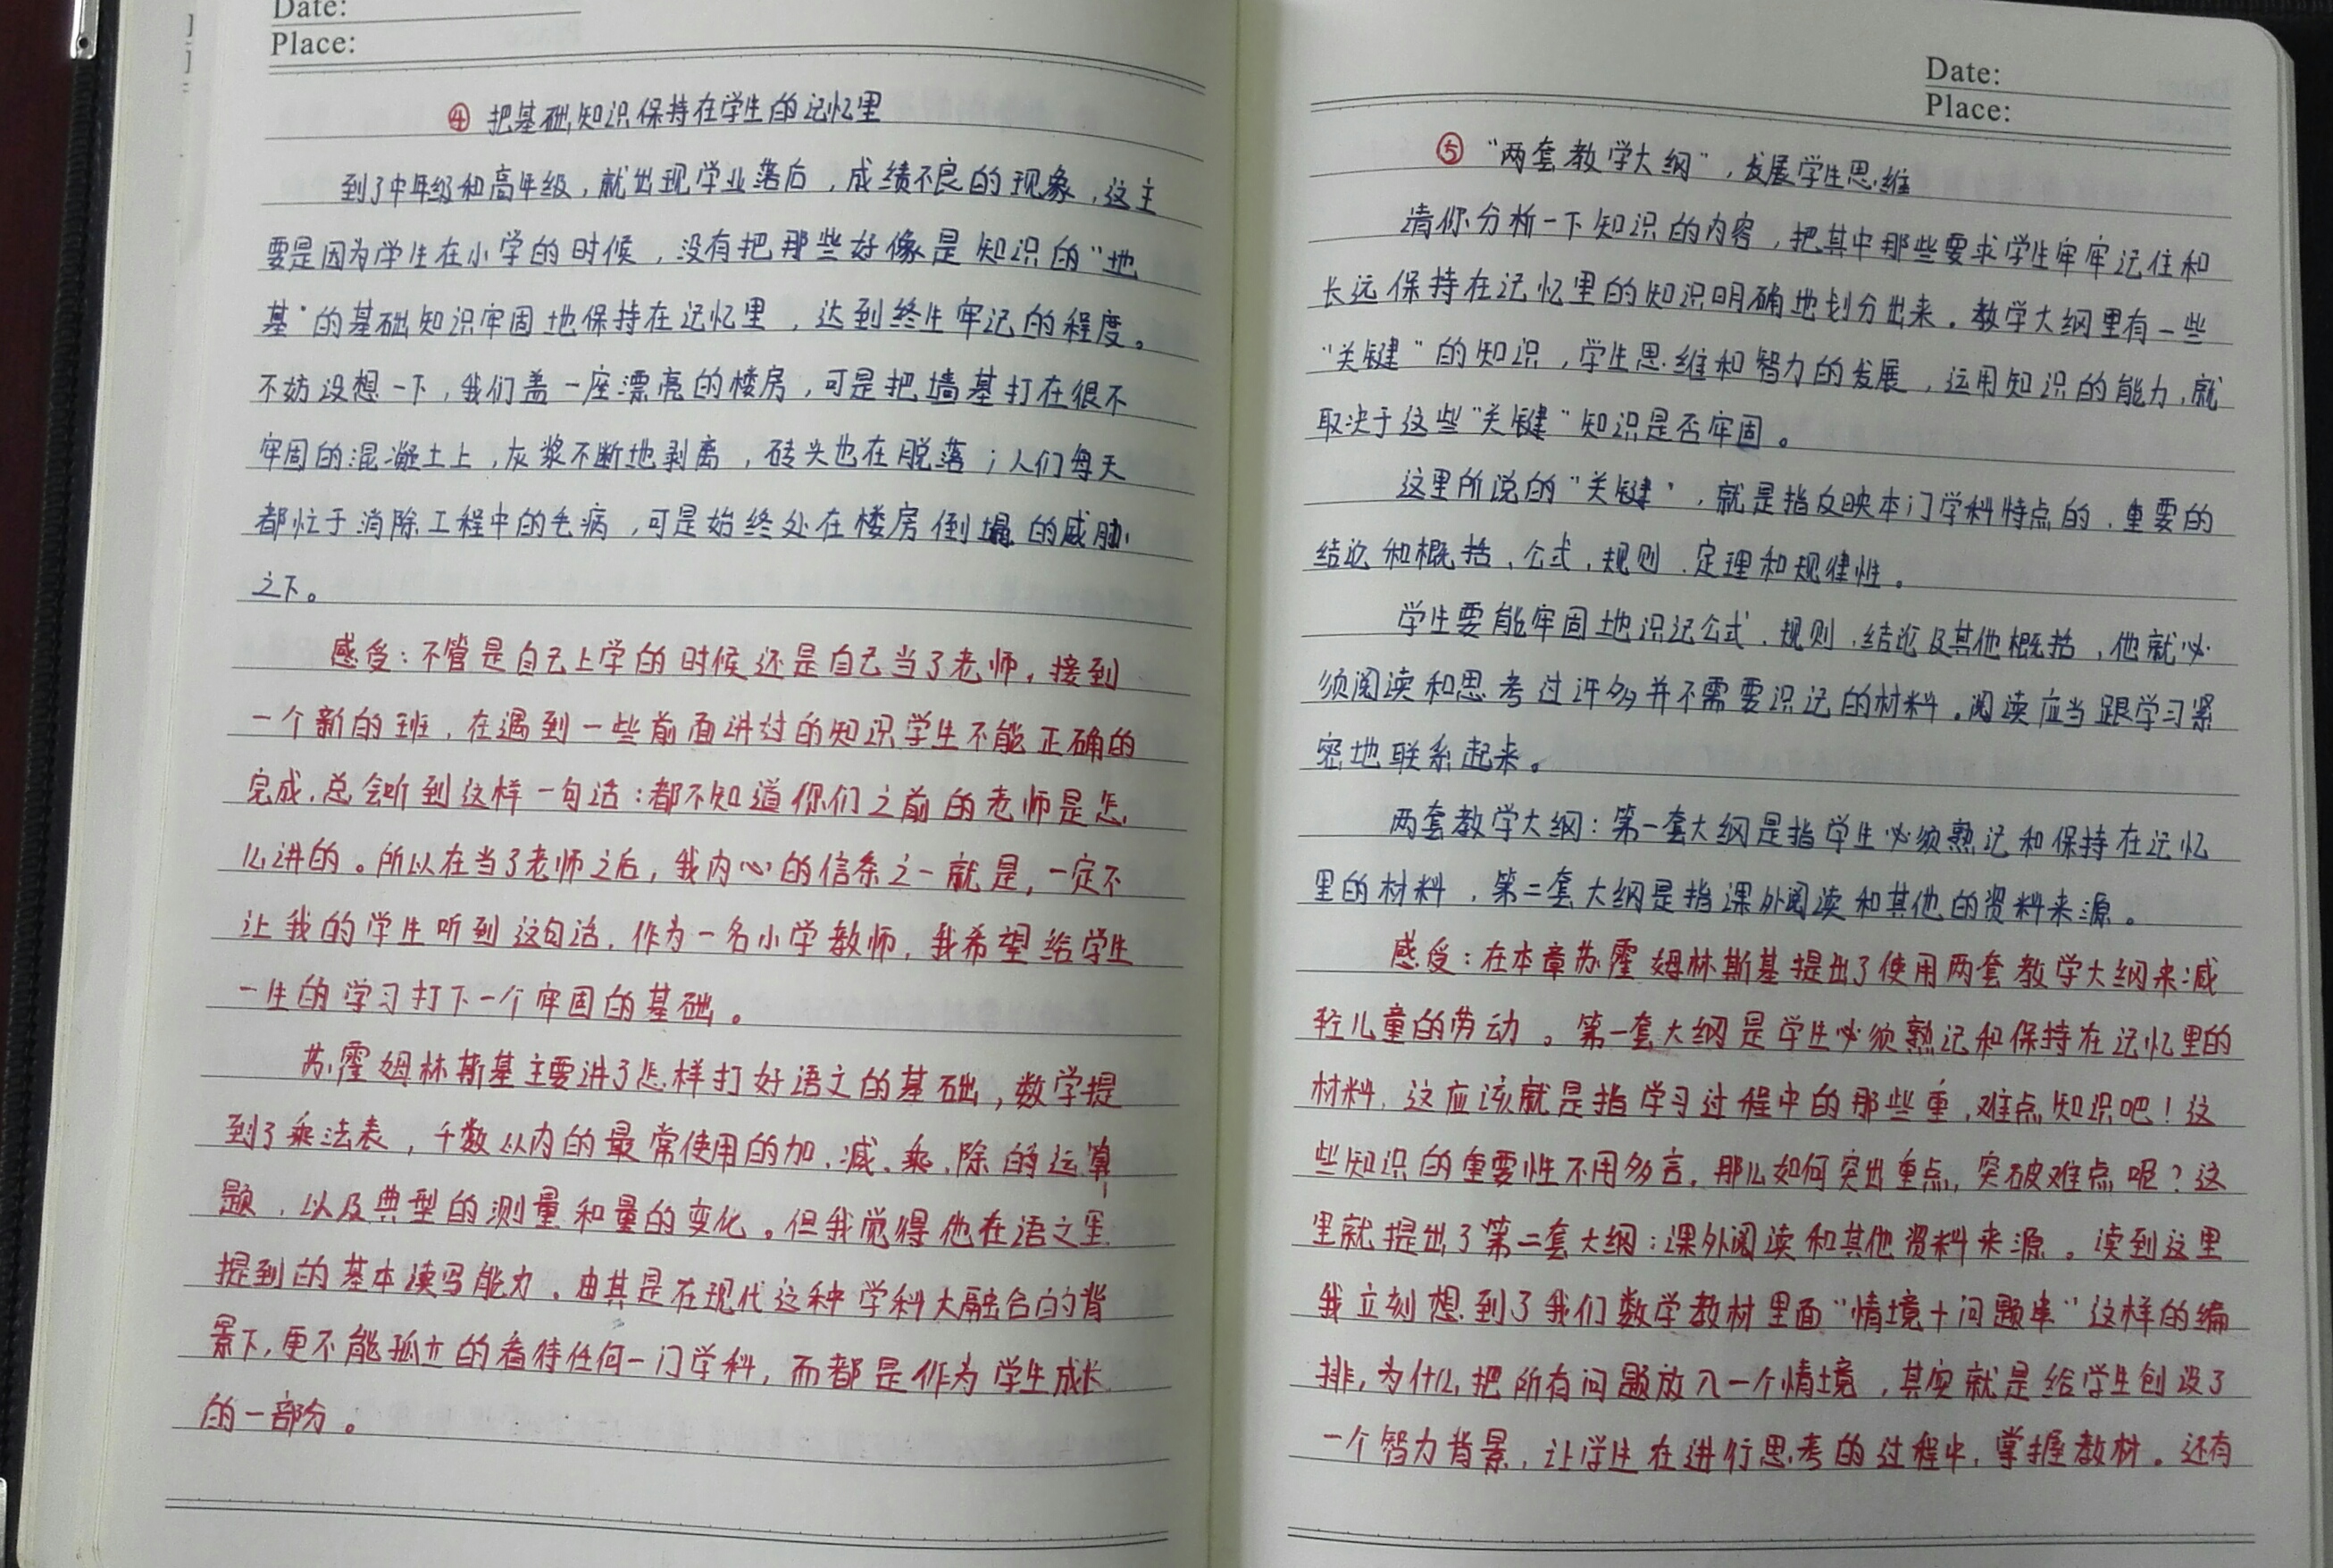 Date:
Place:
④ 把基础知识保持在学生的记忆里
到了中年级和高年级，就出现学业落后，成绩不良的现象，这主
要是因为学生在小学的时候，没有把那些好像是知识的“地
基”的基础知识牢固地保持在记忆里，达到终生牢记的程度。
不妨设想一下，我们盖一座漂亮的楼房，可是把墙基打在很不
牢固的混凝土上，灰浆不断地剥离，砖头也在脱落；人们每天
都忙于消除工程中的毛病，可是始终处在楼房倒塌的威胁
之下。
感受：不管是自己上学的时候还是自己当了老师，接到
一个新的班，在遇到一些前面讲过的知识学生不能正确的
完成，总会听到这样一句话：都不知道你们之前的老师是怎
么讲的。所以在当了老师之后，我内心的信条之一就是，一定不
让我的学生听到这句话，作为一名小学教师，我希望给学生
一生的学习打下一个牢固的基础。
苏霍姆林斯基主要讲了怎样打好语文的基础，数学提
到了乘法表，千数以内的最常使用的加、减、乘、除的运算
题，以及典型的测量和量的变化。但我觉得他在语文里
提到的基本读写能力，由其是在现代这种学科大融合的背
景下，更不能孤立的看待任何一门学科，而都是作为学生成长
的一部分。
Date:
Place:
⑤ “两套教学大纲”，发展学生思维
请你分析一下知识的内容，把其中那些要求学生牢牢记住和
长远保持在记忆里的知识明确地划分出来。教学大纲里有一些
“关键”的知识，学生思维和智力的发展，运用知识的能力，就
取决于这些“关键”知识是否牢固。
这里所说的“关键”，就是指反映本门学科特点的、重要的
结论和概括、公式、规则、定理和规律性。
学生要能牢固地识记公式、规则、结论及其他概括，他就必
须阅读和思考过许多并不需要识记的材料。阅读应当跟学习紧
密地联系起来。
两套教学大纲：第一套大纲是指学生必须熟记和保持在记忆
里的材料，第二套大纲是指课外阅读和其他的资料来源。
感受：在本章苏霍姆林斯基提出了使用两套教学大纲来减
轻儿童的劳动。第一套大纲是学生必须熟记和保持在记忆里的
材料，这应该就是指学习过程中的那些重，难点知识吧！这
些知识的重要性不用多言，那么如何突出重点，突破难点呢？这
里就提出了第二套大纲：课外阅读和其他资料来源。读到这里
我立刻想到了我们数学教材里面“情境+问题串”这样的编
排，为什么把所有问题放入一个情境，其实就是给学生创设了
一个智力背景，让学生在进行思考的过程中，掌握教材。还有